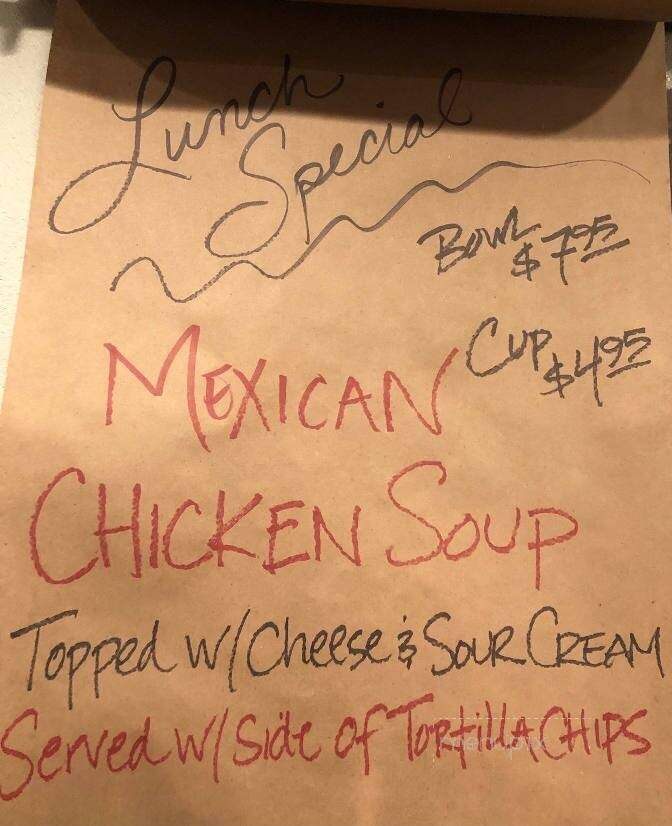 Lunch
Special
Bowl
$7.95
MEXICAN
Cup
$4.95
CHICKEN SOUP
Topped w/ Cheese & SOUR CREAM
Served w/ Side of TORtillA CHIPS